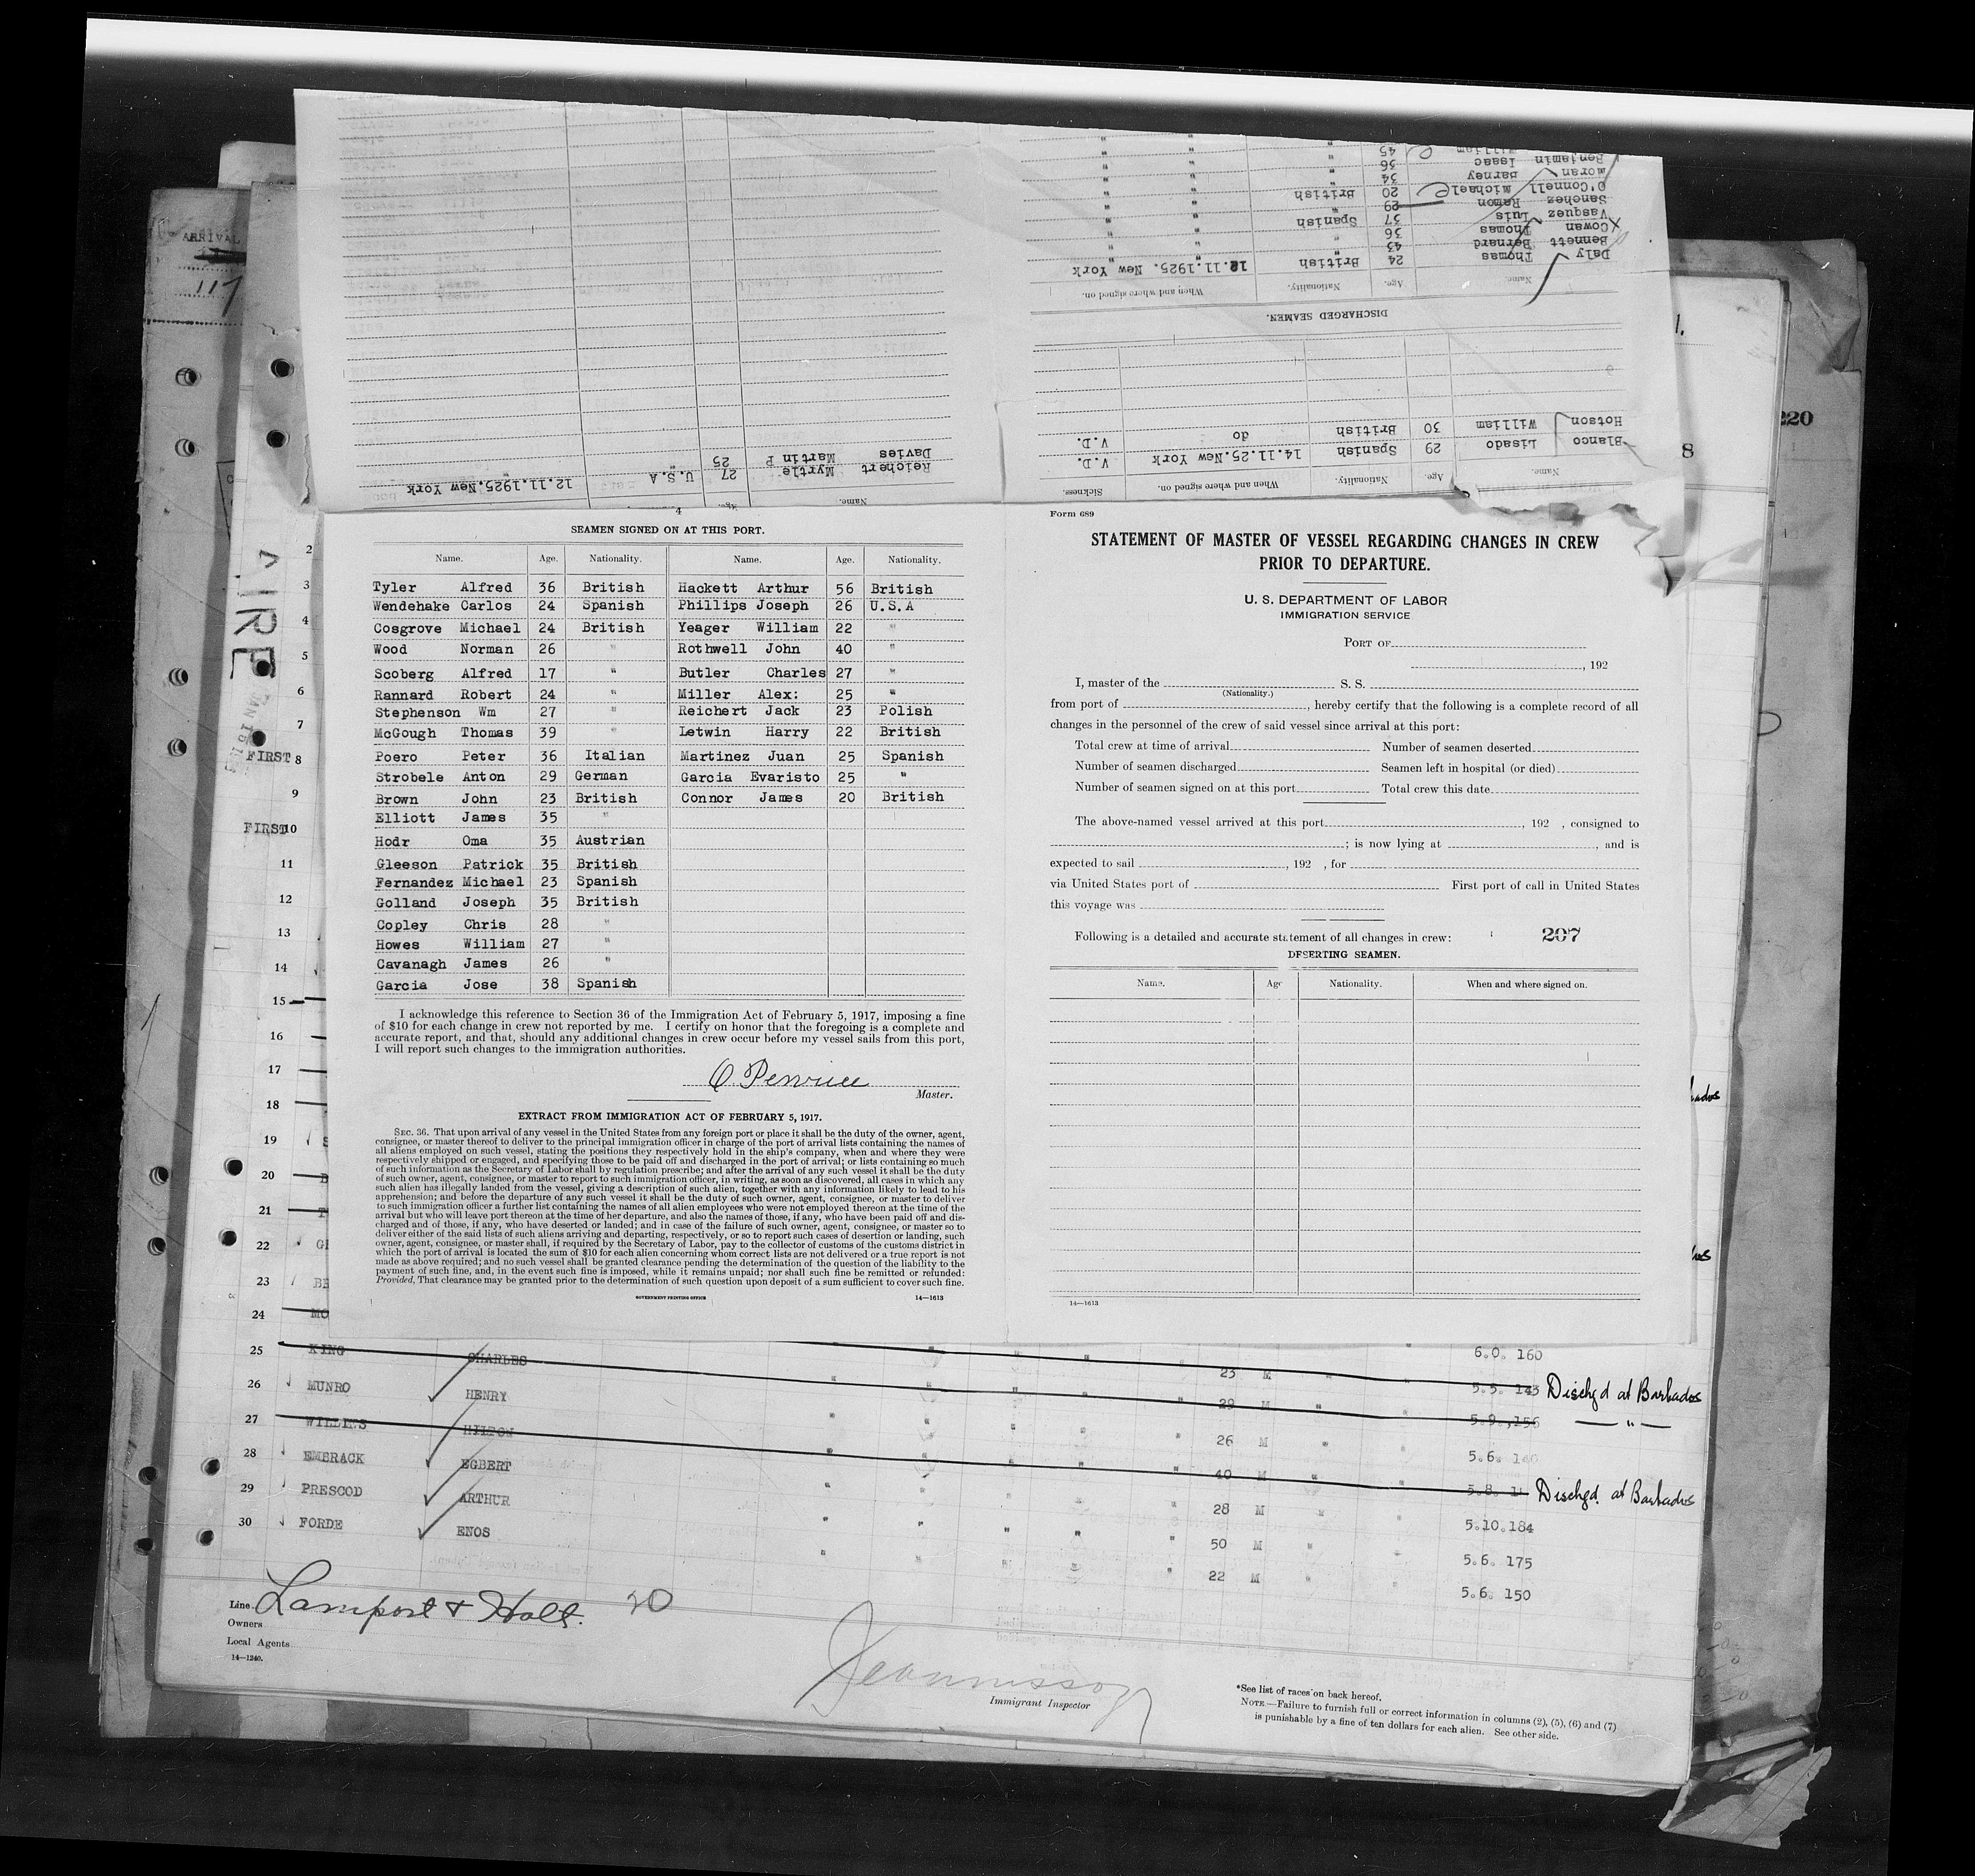 ARRIVAL
117
Benjamin Isaac 36 " " "
Moran Barney 34 " " "
O'Connell Michael 20 British " "
Sanchez Ramon 29 " " "
Vasquez Luis 37 Spanish " "
Cowan Thomas 36 " " "
Bennett Bernard 43 " " "
Daly Thomas 24 British 12.11.1925. New York
Name. Age. Nationality. When and where signed on.
DISCHARGED SEAMEN.
Hotson William 30 British do V.D.
Blanco Lisado 29 Spanish 14.11.25.New York V.D.
Name. Age. Nationality. When and where signed on. Sickness.
Davies Martin P 25 "
Reichert Myrtle 27 U.S.A 12.11.1925.New York
Name. Age.
220
8
4
SEAMEN SIGNED ON AT THIS PORT.
Name. Age. Nationality. Name. Age. Nationality.
Tyler Alfred 36 British Hackett Arthur 56 British
Wendehake Carlos 24 Spanish Phillips Joseph 26 U.S.A
Cosgrove Michael 24 British Yeager William 22 "
Wood Norman 26 " Rothwell John 40 "
Scoberg Alfred 17 " Butler Charles 27 "
Rannard Robert 24 " Miller Alex: 25 "
Stephenson Wm 27 " Reichert Jack 23 Polish
McGough Thomas 39 " Letwin Harry 22 British
Poero Peter 36 Italian Martinez Juan 25 Spanish
Strobele Anton 29 German Garcia Evaristo 25 "
Brown John 23 British Connor James 20 British
Elliott James 35 "
Hodr Oma 35 Austrian
Gleeson Patrick 35 British
Fernandez Michael 23 Spanish
Golland Joseph 35 British
Copley Chris 28 "
Howes William 27 "
Cavanagh James 26 "
Garcia Jose 38 Spanish
I acknowledge this reference to Section 36 of the Immigration Act of February 5, 1917, imposing a fine
of $10 for each change in crew not reported by me. I certify on honor that the foregoing is a complete and
accurate report, and that, should any additional changes in crew occur before my vessel sails from this port,
I will report such changes to the immigration authorities.
Master.
EXTRACT FROM IMMIGRATION ACT OF FEBRUARY 5, 1917.
SEC. 36. That upon arrival of any vessel in the United States from any foreign port or place it shall be the duty of the owner, agent,
consignee, or master thereof to deliver to the principal immigration officer in charge of the port of arrival lists containing the names of
all aliens employed on such vessel, stating the positions they respectively hold in the ship's company, when and where they were
respectively shipped or engaged, and specifying those to be paid off and discharged in the port of arrival; or lists containing so much
of such information as the Secretary of Labor shall by regulation prescribe; and after the arrival of any such vessel it shall be the duty
of such owner, agent, consignee, or master to report to such immigration officer, in writing, as soon as discovered, all cases in which any
such alien has illegally landed from the vessel, giving a description of such alien, together with any information likely to lead to his
apprehension; and before the departure of any such vessel it shall be the duty of such owner, agent, consignee, or master to deliver
to such immigration officer a further list containing the names of all alien employees who were not employed thereon at the time of the
arrival but who will leave port thereon at the time of her departure, and also the names of those, if any, who have been paid off and dis-
charged and of those, if any, who have deserted or landed; and in case of the failure of such owner, agent, consignee, or master so to
deliver either of the said lists of such aliens arriving and departing, respectively, or so to report such cases of desertion or landing, such
owner, agent, consignee, or master shall, if required by the Secretary of Labor, pay to the collector of customs of the customs district in
which the port of arrival is located the sum of $10 for each alien concerning whom correct lists are not delivered or a true report is not
made as above required; and no such vessel shall be granted clearance pending the determination of the question of the liability to the
payment of such fine, and, in the event such fine is imposed, while it remains unpaid; nor shall such fine be remitted or refunded:
Provided, That clearance may be granted prior to the determination of such question upon deposit of a sum sufficient to cover such fine.
GOVERNMENT PRINTING OFFICE 14—1613
Form 689
STATEMENT OF MASTER OF VESSEL REGARDING CHANGES IN CREW
PRIOR TO DEPARTURE.
U. S. DEPARTMENT OF LABOR
IMMIGRATION SERVICE
PORT OF
, 192
I, master of the S. S.
(Nationality.)
from port of , hereby certify that the following is a complete record of all
changes in the personnel of the crew of said vessel since arrival at this port:
Total crew at time of arrival Number of seamen deserted
Number of seamen discharged Seamen left in hospital (or died)
Number of seamen signed on at this port Total crew this date
The above-named vessel arrived at this port , 192 , consigned to
; is now lying at , and is
expected to sail , 192 , for
via United States port of First port of call in United States
this voyage was
Following is a detailed and accurate statement of all changes in crew: 207
DESERTING SEAMEN.
Name. Age Nationality. When and where signed on.
14—1613
AIRE
2
3
4
5
6
7
FIRST 8
9
FIRST 10
11
12
13
14
15
16
17
18
19
20
21
22
23 BE
24 MO
25 KING CHARLES 6.0. 160
26 MUNRO HENRY " " " " 23 M " " 5.5. 143 Dischgd at Barbados
27 WILLINS HILTON " " " " 29 M " " 5.9. 156 — " —
28 EMBRACK EGBERT " " " " 26 M " " 5.6.
29 PRESCOD ARTHUR " " " " 40 M " " 5.8. Dischgd. at Barbados
30 FORDE ENOS " " " " 28 M " " 5.10.184
" " " " 50 M " " 5.6. 175
" " " " 22 M " " 5.6. 150
Line Lamport & Holt. 20
Owners
Local Agents
14—1240.
Immigrant Inspector
*See list of races on back hereof.
NOTE.—Failure to furnish full or correct information in columns (2), (5), (6) and (7)
is punishable by a fine of ten dollars for each alien. See other side.